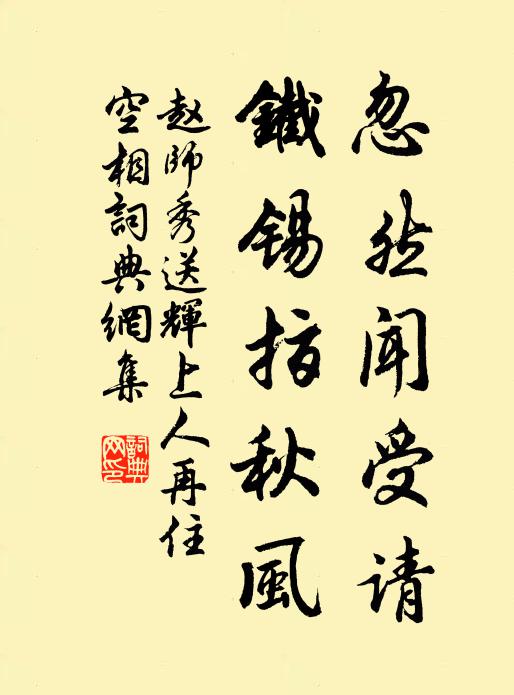 忽然闻受请
鐵锡指秋風
赵師秀送輝上人再住
空相詞典網集
詞典网印